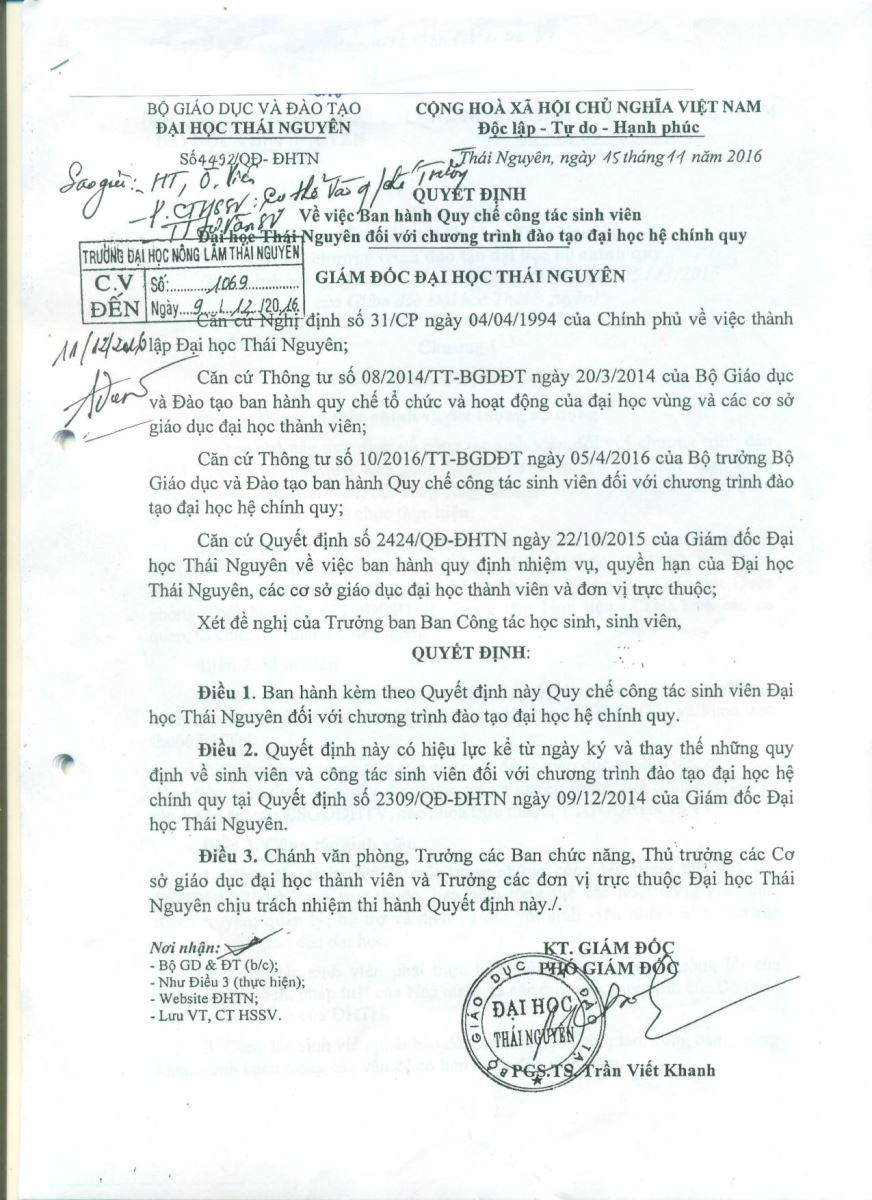 BỘ GIÁO DỤC VÀ ĐÀO TẠO
ĐẠI HỌC THÁI NGUYÊN
CỘNG HOÀ XÃ HỘI CHỦ NGHĨA VIỆT NAM
Độc lập - Tự do - Hạnh phúc
Số 4492/QĐ- ĐHTN
Thái Nguyên, ngày 15 tháng 11 năm 2016
Sao gửi: - HT,
- P. CTHSSV:
QUYẾT ĐỊNH
Về việc Ban hành Quy chế công tác sinh viên
Đại học Thái Nguyên đối với chương trình đào tạo đại học hệ chính quy
TRƯỜNG ĐẠI HỌC NÔNG LÂM THÁI NGUYÊN
C.V ĐẾN
Số: 1069
Ngày 9 / 12 /2016
11/12/2016
GIÁM ĐỐC ĐẠI HỌC THÁI NGUYÊN
Căn cứ Nghị định số 31/CP ngày 04/04/1994 của Chính phủ về việc thành
lập Đại học Thái Nguyên;
Căn cứ Thông tư số 08/2014/TT-BGDĐT ngày 20/3/2014 của Bộ Giáo dục
và Đào tạo ban hành quy chế tổ chức và hoạt động của đại học vùng và các cơ sở
giáo dục đại học thành viên;
Căn cứ Thông tư số 10/2016/TT-BGDĐT ngày 05/4/2016 của Bộ trưởng Bộ
Giáo dục và Đào tạo ban hành Quy chế công tác sinh viên đối với chương trình đào
tạo đại học hệ chính quy;
Căn cứ Quyết định số 2424/QĐ-ĐHTN ngày 22/10/2015 của Giám đốc Đại
học Thái Nguyên về việc ban hành quy định nhiệm vụ, quyền hạn của Đại học
Thái Nguyên, các cơ sở giáo dục đại học thành viên và đơn vị trực thuộc;
Xét đề nghị của Trưởng ban Ban Công tác học sinh, sinh viên,
QUYẾT ĐỊNH:
Điều 1. Ban hành kèm theo Quyết định này Quy chế công tác sinh viên Đại
học Thái Nguyên đối với chương trình đào tạo đại học hệ chính quy.
Điều 2. Quyết định này có hiệu lực kể từ ngày ký và thay thế những quy
định về sinh viên và công tác sinh viên đối với chương trình đào tạo đại học hệ
chính quy tại Quyết định số 2309/QĐ-ĐHTN ngày 09/12/2014 của Giám đốc Đại
học Thái Nguyên.
Điều 3. Chánh văn phòng, Trưởng các Ban chức năng, Thủ trưởng các Cơ
sở giáo dục đại học thành viên và Trưởng các đơn vị trực thuộc Đại học Thái
Nguyên chịu trách nhiệm thi hành Quyết định này./.
Nơi nhận:
- Bộ GD & ĐT (b/c);
- Như Điều 3 (thực hiện);
- Website ĐHTN;
- Lưu VT, CT HSSV.
KT. GIÁM ĐỐC
PHÓ GIÁM ĐỐC
BỘ GIÁO DỤC VÀ ĐÀO TẠO
ĐẠI HỌC
THÁI NGUYÊN
PGS.TS. Trần Viết Khanh